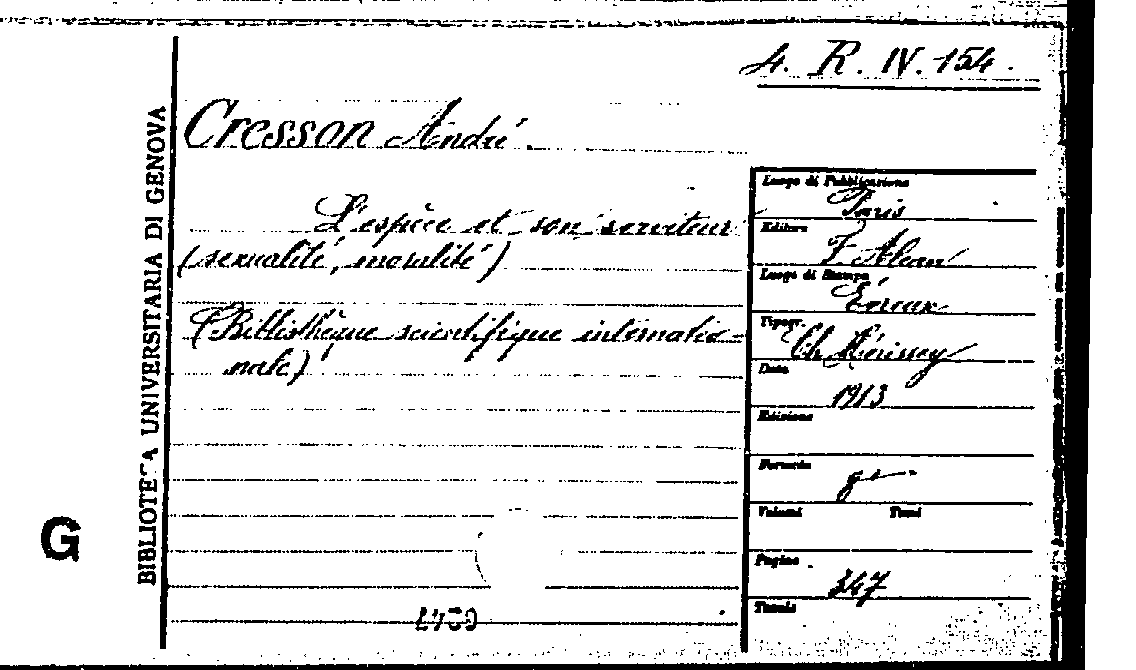 4. R. IV. 154.
Cresson André.
L'espèce et son serviteur
(sexualité, moralité)
(Bibliothèque scientifique internatio-
nale)
Luogo di Pubblicazione
Paris
Editore
F. Alcan
Luogo di Stampa
Évreux
Tipogr.
Ch. Hérissey
Data
1913
Edizione
Formato
8°
Volumi Tomi
Pagine
347
BIBLIOTECA UNIVERSITARIA DI GENOVA
G